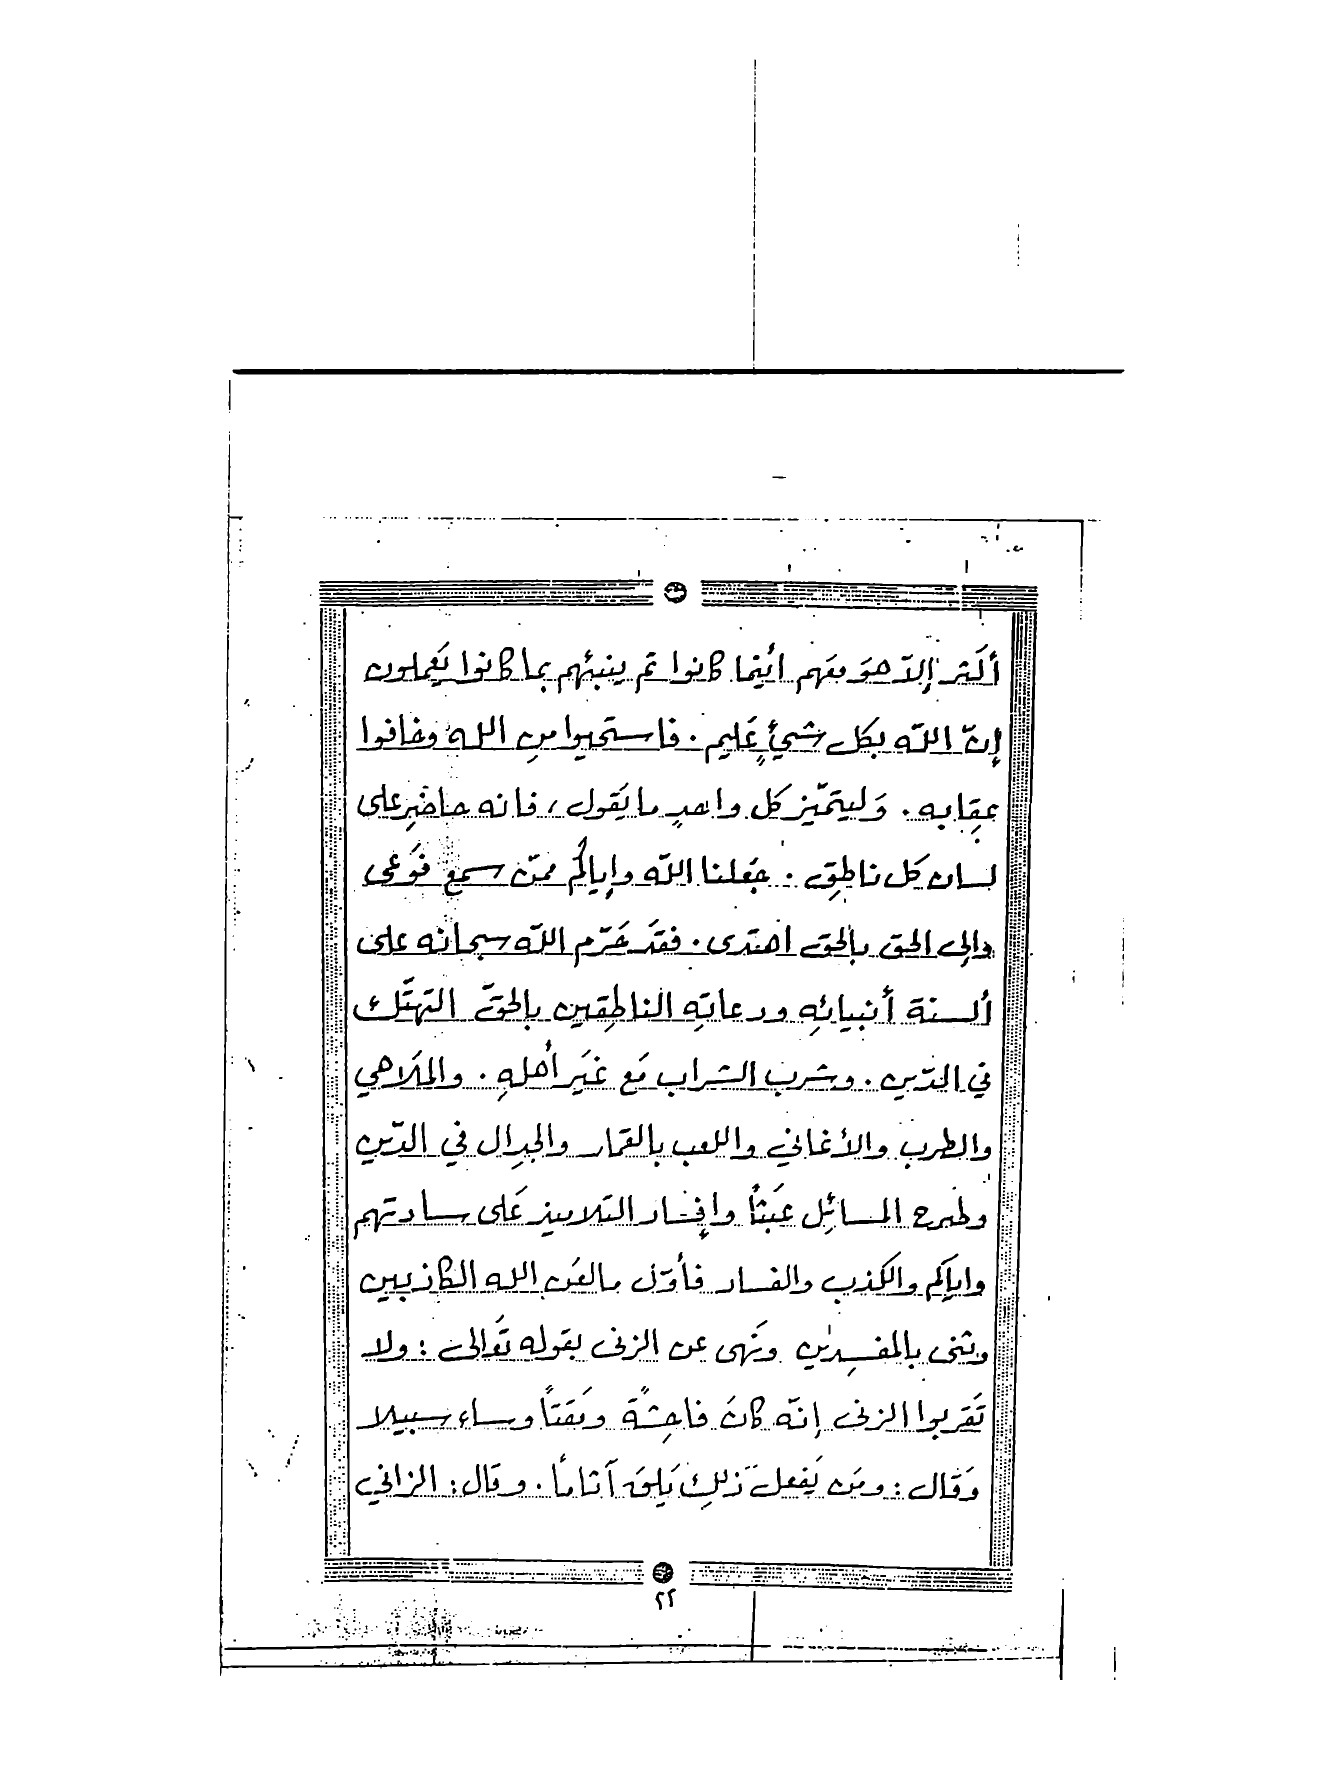 أكثر إلاّ هوَ معَهم أينما كانوا ثم ينبئهم بما كانوا يَعملون
إنّ اللّه بكل شيءٍ عَليم . فاستحيوا مِن الله وخافوا
عِقابه . وَليتميّز كل واحدٍ ما يَقول ، فانه حاضِر على
لسان كل ناطِق . جعَلنا اللّه وإياكُم ممّن سمع فوَعى
وإلى الحق بالحق اهتدى . فقَد حَرّم اللّه سبحانه على
ألسنة أنبيائِه ودعاتِه الناطِقين بالحقّ التهتّك
في الدّين . وشرب الشراب مَع غيَر أهلهِ . والملَاهي
والطرب والأغاني واللعب بالقمار والجِدال في الدّين
وطرح المسائِل عبَثاً وإفِساد التلاميذ عَلى سادتهم
واياكم والكذب والفساد فأوّل ما لعَن الله الكاذبين
وثنى بالمفسِدين ونَهى عن الزنى بقوله تَعالى : ولا
تَقربوا الزنى إنّه كانَ فاحِشةً ومَقتاً وساء سبيلا
وَقال : ومَن يَفعل ذَلِك يَلقَ آثاماً . وقال : الزاني
٢٢